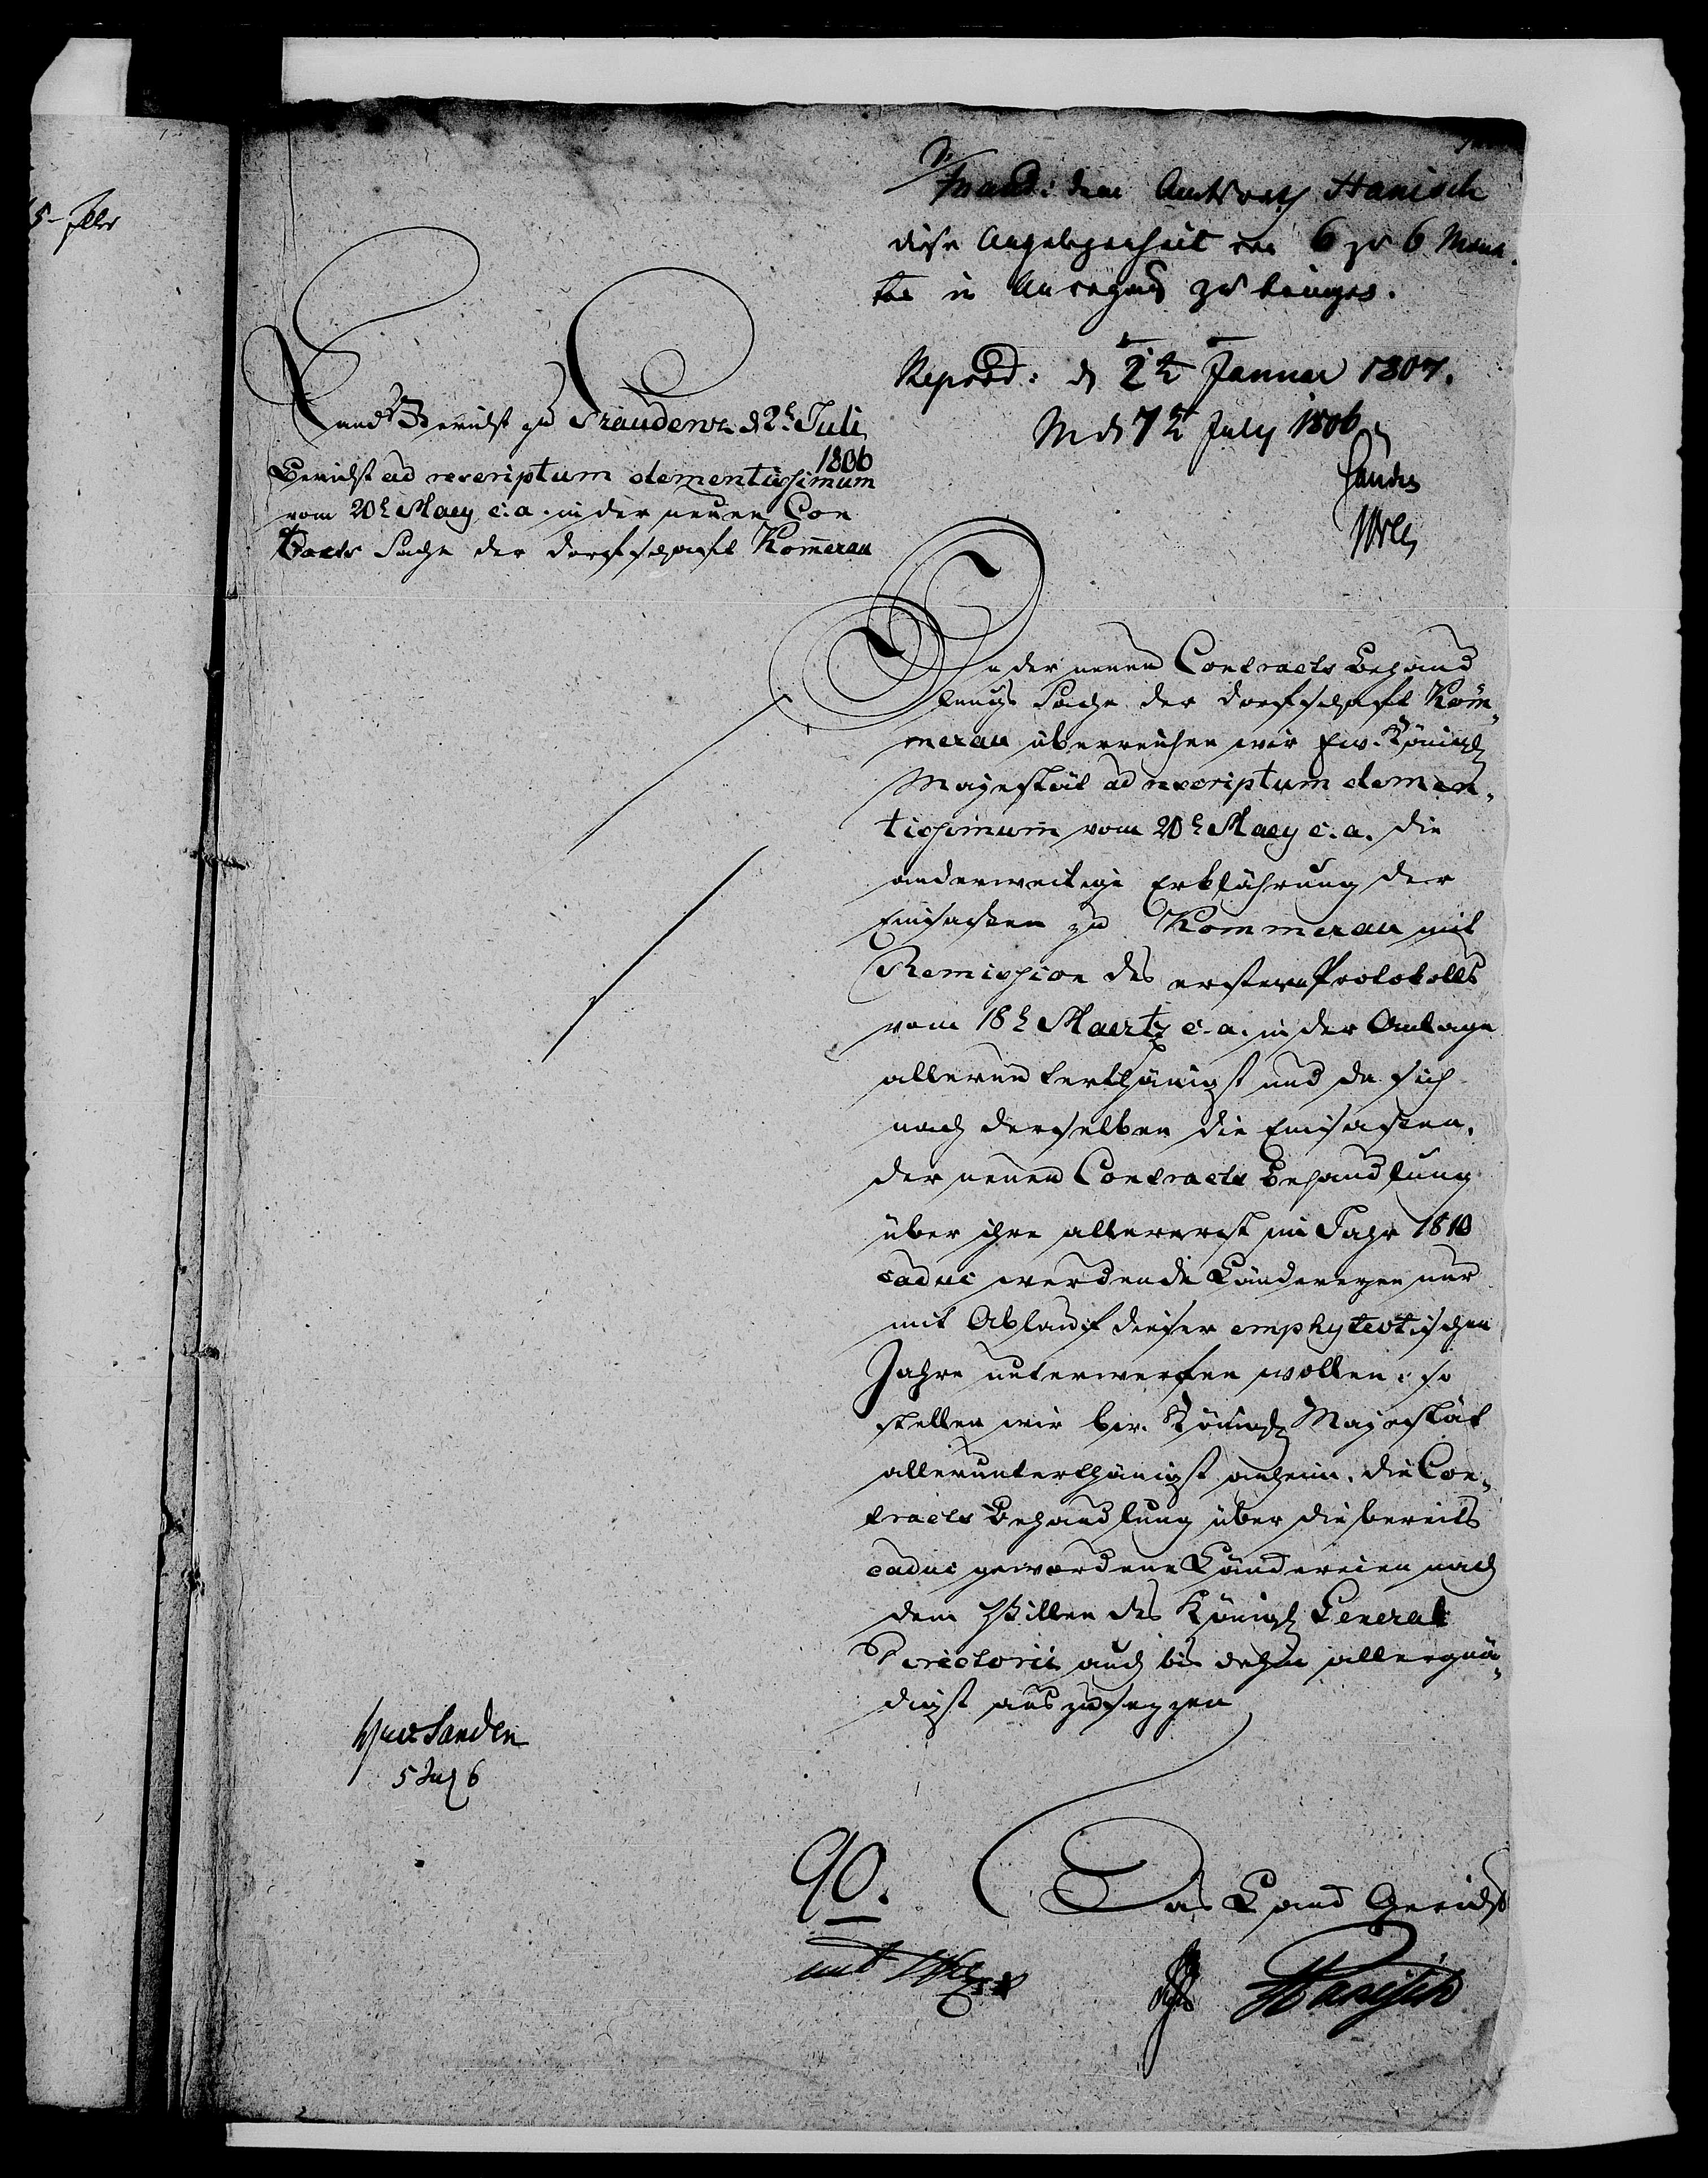 Mand: dem Amtsrath Hanisch
diese Angelegenheit von 6 zu 6 Mona
ten in Anregung zu bringen.
Reprod: d 2t Januar 1807.
M d 7t July 1806
Sanden
Land Gericht zu Graudenz d 2t Juli
1806
Bericht ad rescriptum clementissimum
vom 20t Mary c. a. in der neuen Con
tracts Sache der Dorfschaft Komerau
In der neuen Contracts Behand
lungs Sache der Dorfschaft Kom¬
merau überreichen wir Ew. Königl
Majestät ad rescriptum clemen¬
tissimum vom 20t Mary c. a. die
anderweitige Erklährung der
Einsassen zu Kommerau mit
Remission des erstern Protokolls
vom 18t Maertz c. a. in der Anlage
allerunterthänigst und da sich
nach derselben die Einsassen,
der neuen Contracts Behandlung
über ihre allererst im Jahr 1810
caduc werdende Ländereyen nur
mit Ablauf dieser emphytevtischen
Jahre unterwerfen wollen: so
stellen wir Ew. Königl Majestät
allerunterthänigst anheim, die Con¬
tracts Behandlung über die bereits
caduc gewordene Ländereien nach
dem Willen des Königl General
Directorii auch bis dahin allergnä¬
digst auszusezzen
v Sanden
5 Jul 6
90.
Das Land Gericht
Hanisch